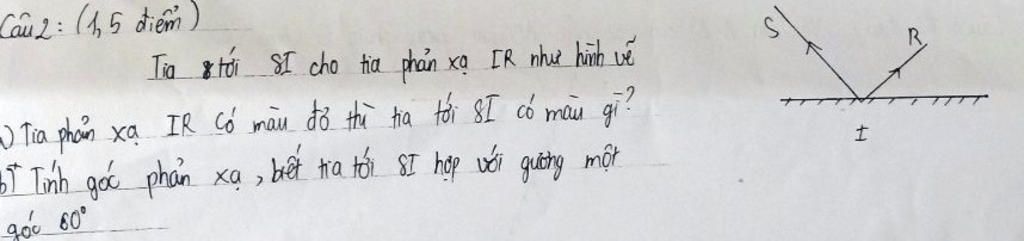 Câu 2: (1,5 điểm)
Tia tới SI cho tia phản xạ IR như hình vẽ
a) Tia phản xạ IR có màu đỏ thì tia tới SI có màu gì?
b) Tính góc phản xạ, biết tia tới SI hợp với gương một
góc 60°
S
R
I